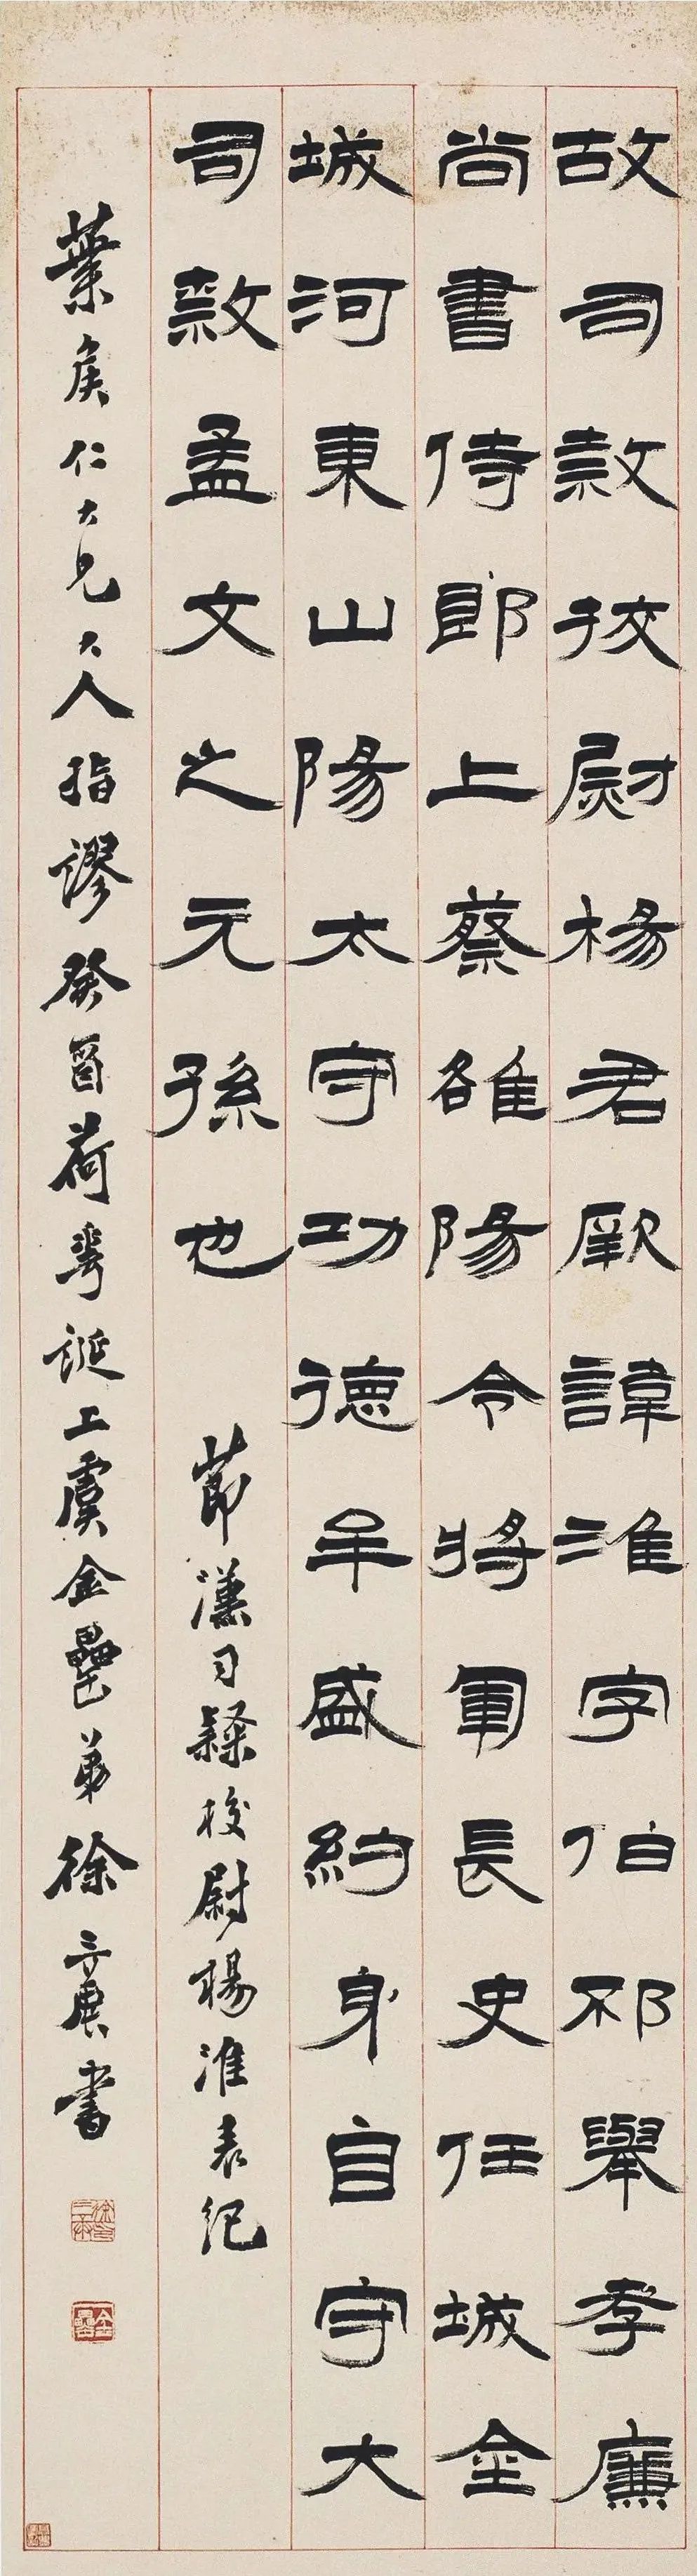 故司敹挍尉楊君厥諱淮字伯邳舉孝廉
尚書侍郎上蔡雒陽令將軍長史任城金
城河東山陽太守功德牟盛約身自守大
司敹孟文之元孫也 節漢司隸校尉楊淮表紀
葉矦仁大兄大人指謬癸酉荷華誕上虞金罍弟徐三庚書